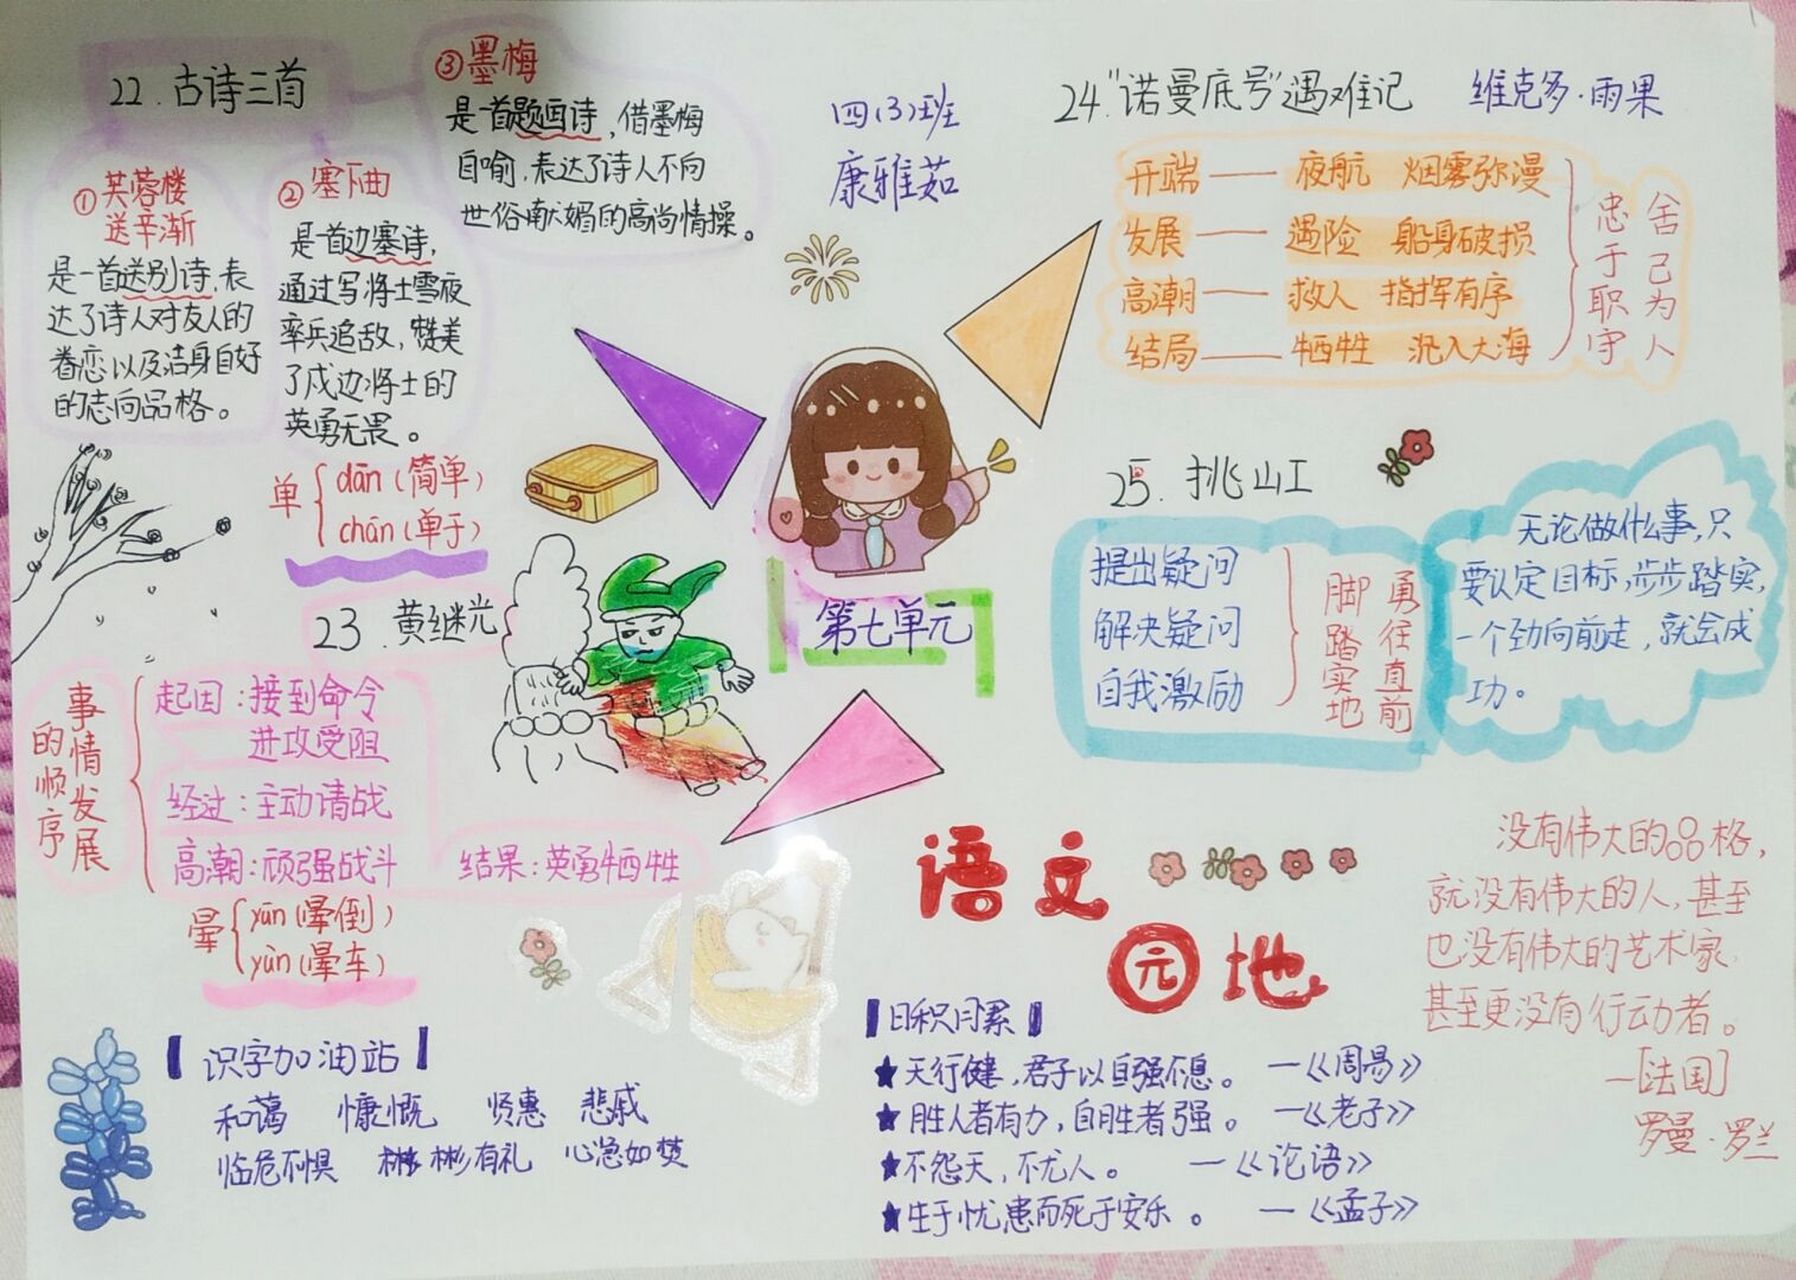 22.古诗三首
①芙蓉楼
送辛渐
是一首送别诗,表
达了诗人对友人的
眷恋以及洁身自好
的志向品格。
②塞下曲
是首边塞诗,
通过写将士雪夜
率兵追敌,赞美
了戍边将士的
英勇无畏。
③墨梅
是一首题画诗,借墨梅
自喻,表达了诗人不向
世俗献媚的高尚情操。
单
dān(简单)
chán(单于)
四(3)班
康雅茹
第七单元
23.黄继光
事情发展
的顺序
起因:接到命令
进攻受阻
经过:主动请战
高潮:顽强战斗
结果:英勇牺牲
晕
yūn(晕倒)
yùn(晕车)
24."诺曼底号"遇难记 维克多·雨果
开端——夜航 烟雾弥漫
发展——遇险 船身破损
高潮——救人 指挥有序
结局——牺牲 沉入大海
忠于职守
舍己为人
25.挑山工
提出疑问
解决疑问
自我激励
脚踏实地
勇往直前
无论做什么事,只
要认定目标,步步踏实,
一个劲向前走,就会成
功。
语文
园地
识字加油站
和蔼 慷慨 贤惠 悲戚
临危不惧 彬彬有礼 心急如焚
日积月累
★天行健,君子以自强不息。—《周易》
★胜人者有力,自胜者强。—《老子》
★不怨天,不尤人。—《论语》
★生于忧患而死于安乐。—《孟子》
没有伟大的品格,
就没有伟大的人,甚至
也没有伟大的艺术家,
甚至更没有行动者。
—[法国]
罗曼·罗兰